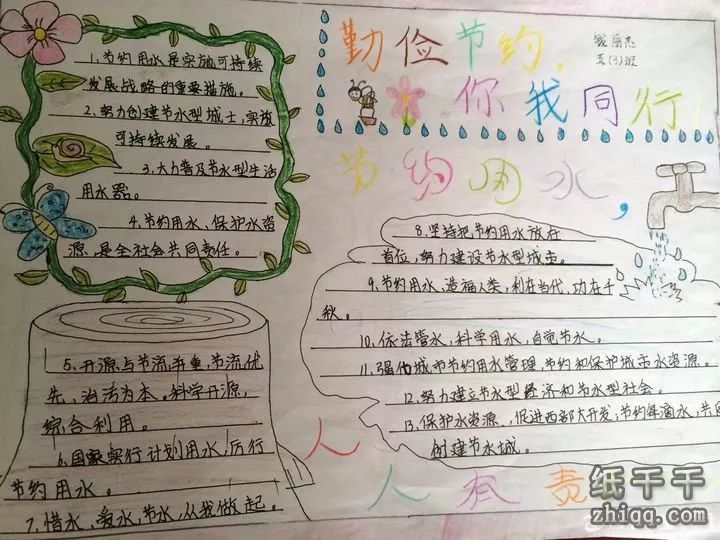 勤俭节约,
你我同行!
五(3)班
节约用水,
人人有责
1.节约用水是实施可持续
发展战略的重要措施。
2.努力创建节水型城士,实施
可持续发展。
3.大力普及节水型生活
用水器。
4.节约用水、保护水资
源,是全社会共同责任。
5.开源与节流并重,节流优
先、治活为本。科学开源,
综合利用。
6.国家实行计划用水,厉行
节约用水。
7.惜水、爱水、节水,从我做起。
8.坚持把节约用水放在
首位,努力建设节水型城市。
9.节约用水、造福人类,利在当代、功在千
秋。
10.依法管水,科学用水,自觉节水。
11.强化城市节约用水管理,节约和保护城市水资源。
12.努力建立节水型经济和节水型社会。
13.保护水资源、促进西部大开发;节约每滴水,共同
创建节水城。
纸千千
zhiqq.com